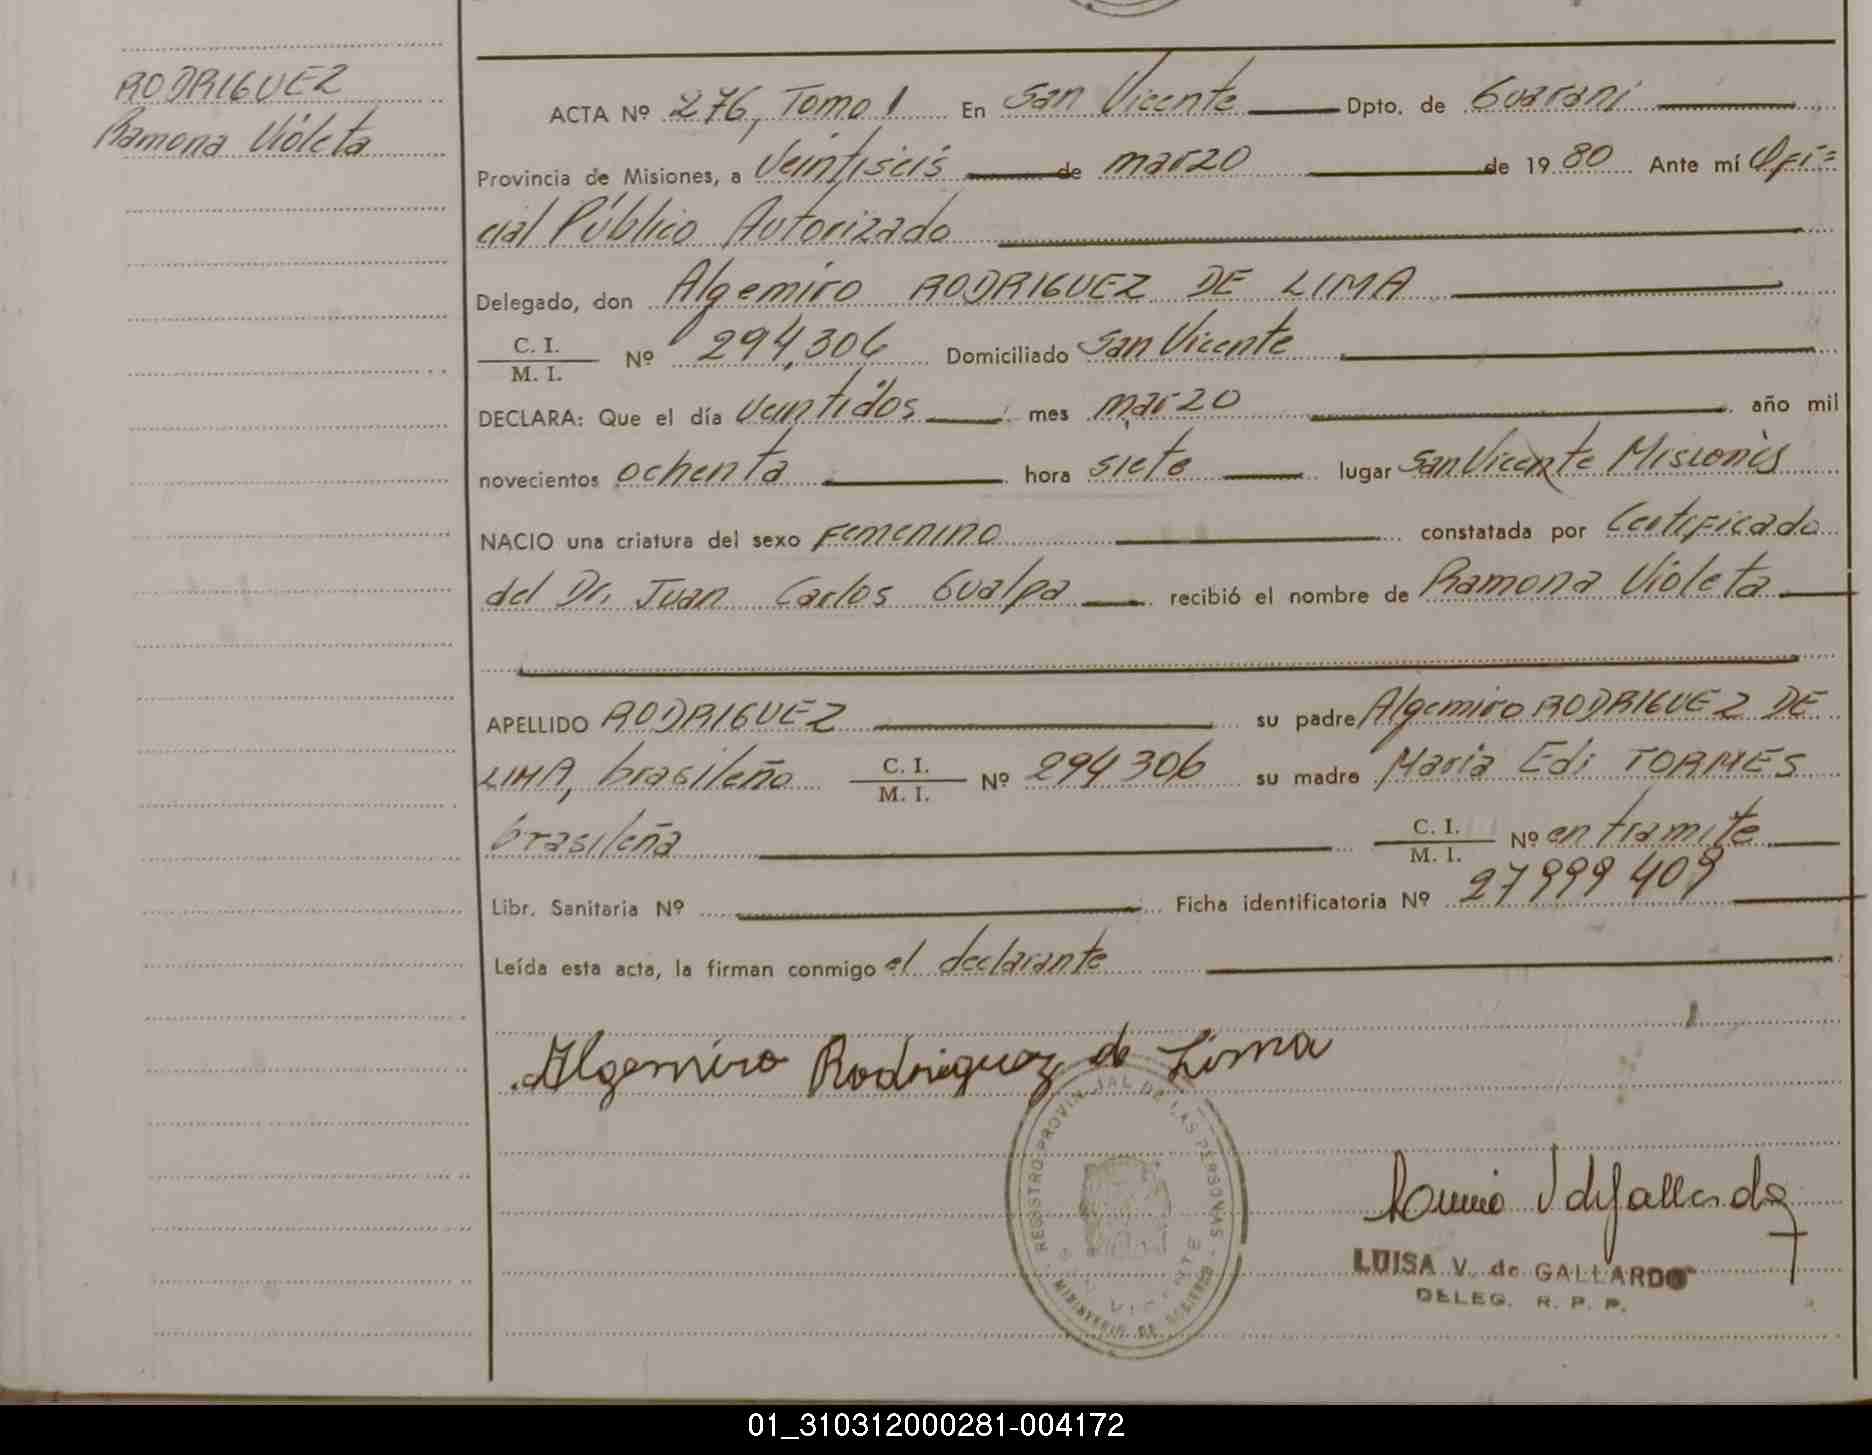 RODRIGUEZ
Ramona Violeta
ACTA Nº 276, Tomo I En San Vicente Dpto. de Guaraní
Provincia de Misiones, a Veintiseis de marzo de 1980 Ante mí Ofi=
cial Público Autorizado
Delegado, don Algemiro RODRIGUEZ DE LIMA
C. I.
M. I.
Nº 294,306 Domiciliado San Vicente
DECLARA: Que el día Veintidos mes marzo año mil
novecientos ochenta hora siete lugar San Vicente Misiones
NACIO una criatura del sexo Femenino constatada por Certificado
del Dr. Juan Carlos Gualpa recibió el nombre de Ramona Violeta
APELLIDO RODRIGUEZ su padre Algemiro RODRIGUEZ DE
LIMA, brasileño C. I. M. I. Nº 294306 su madre Maria Edi TORMES
brasileña C. I. M. I. Nº en tramite
Libr. Sanitaria Nº Ficha identificatoria Nº 27999409
Leída esta acta, la firman conmigo el declarante
Algemiro Rodriguez de Lima
REGISTRO PROVINCIAL DE LAS PERSONAS
VICENTE
MINISTERIO DE GOBIERNO
LUISA V. de GALLARDO
DELEG. R. P. P.
01_310312000281-004172